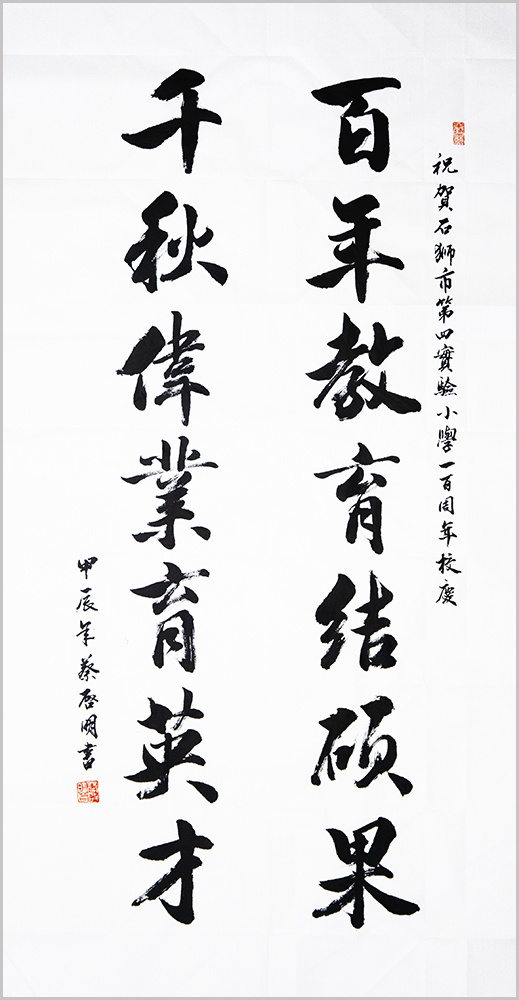 祝賀石獅市第四實驗小學一百周年校慶
百年教育结硕果
千秋偉業育英才
甲辰年蔡啓明書